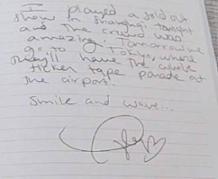 I played a sold out
show in Shanghai tonight
and the crowd was
amazing. Tomorrow we
go to Tokyo, where
they'll have the whole
ticker tape parade at
the airport.
Smile and wave...